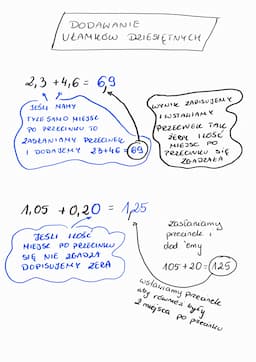 DODAWANIE
UŁAMKÓW DZIESIĘTNYCH
2,3 + 4,6 = 6,9
JEŚLI MAMY
TYLE SAMO MIEJSC
PO PRZECINKU TO
ZASŁANIAMY PRZECINEK
I DODAJEMY 23+46=69
WYNIK ZAPISUJEMY
I WSTAWIAMY
PRZECINEK TAK
ŻEBY ILOŚĆ
MIEJSC PO
PRZECINKU SIĘ
ZGADZAŁA
1,05 + 0,20 = 1,25
JEŚLI ILOŚĆ
MIEJSC PO PRZECINKU
SIĘ NIE ZGADZA
DOPISUJEMY ZERA
zasłaniamy
przecinek i
dodajemy
105+20=125
wstawiamy przecinek
aby również były
2 miejsca po przecinku